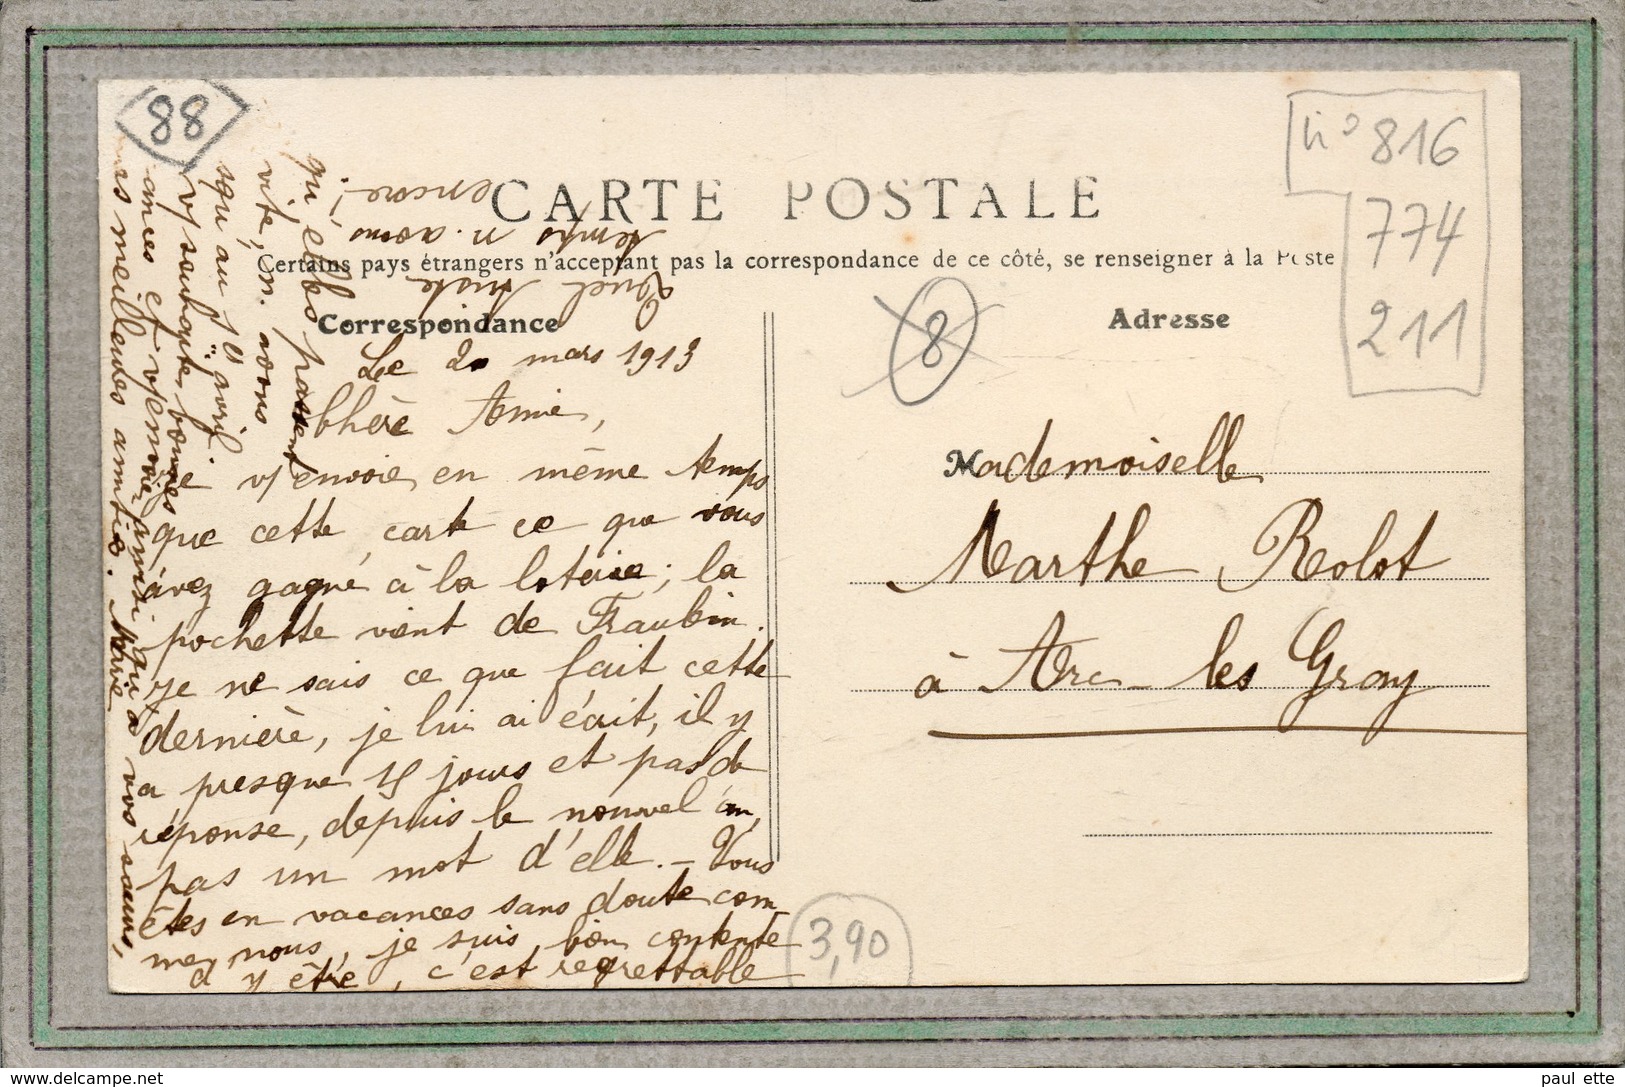 88
n° 816
774
211
CARTE POSTALE
Certains pays étrangers n'acceptant pas la correspondance de ce côté, se renseigner à la Poste
Correspondance
Adresse
8
Le 20 mars 1913
Chère Amie,
Je v/ envoie en même temps
que cette carte ce que vous
avez gagné à la loterie ; la
pochette vient de Fraubin.
Je ne sais ce que fait cette
dernière, je lui ai écrit, il y
a presque 15 jours et pas de
réponse, depuis le nouvel an,
pas un mot d'elle. — Vous
êtes en vacances sans doute com-
me nous, je suis bien contente
d'y être, c'est regrettable
qu'elles passent
vite, n. avons
jusqu'au 10 avril.
Je v/ souhaite bonnes
vacances et v/ envoie ainsi qu'à vos sœurs,
mes meilleures amitiés. Marie
Quel triste
temps n. avons
encore !
Mademoiselle
Marthe Rolot
à Arc-les Gray
3,90
Copyright delcampe.net
paul_ette